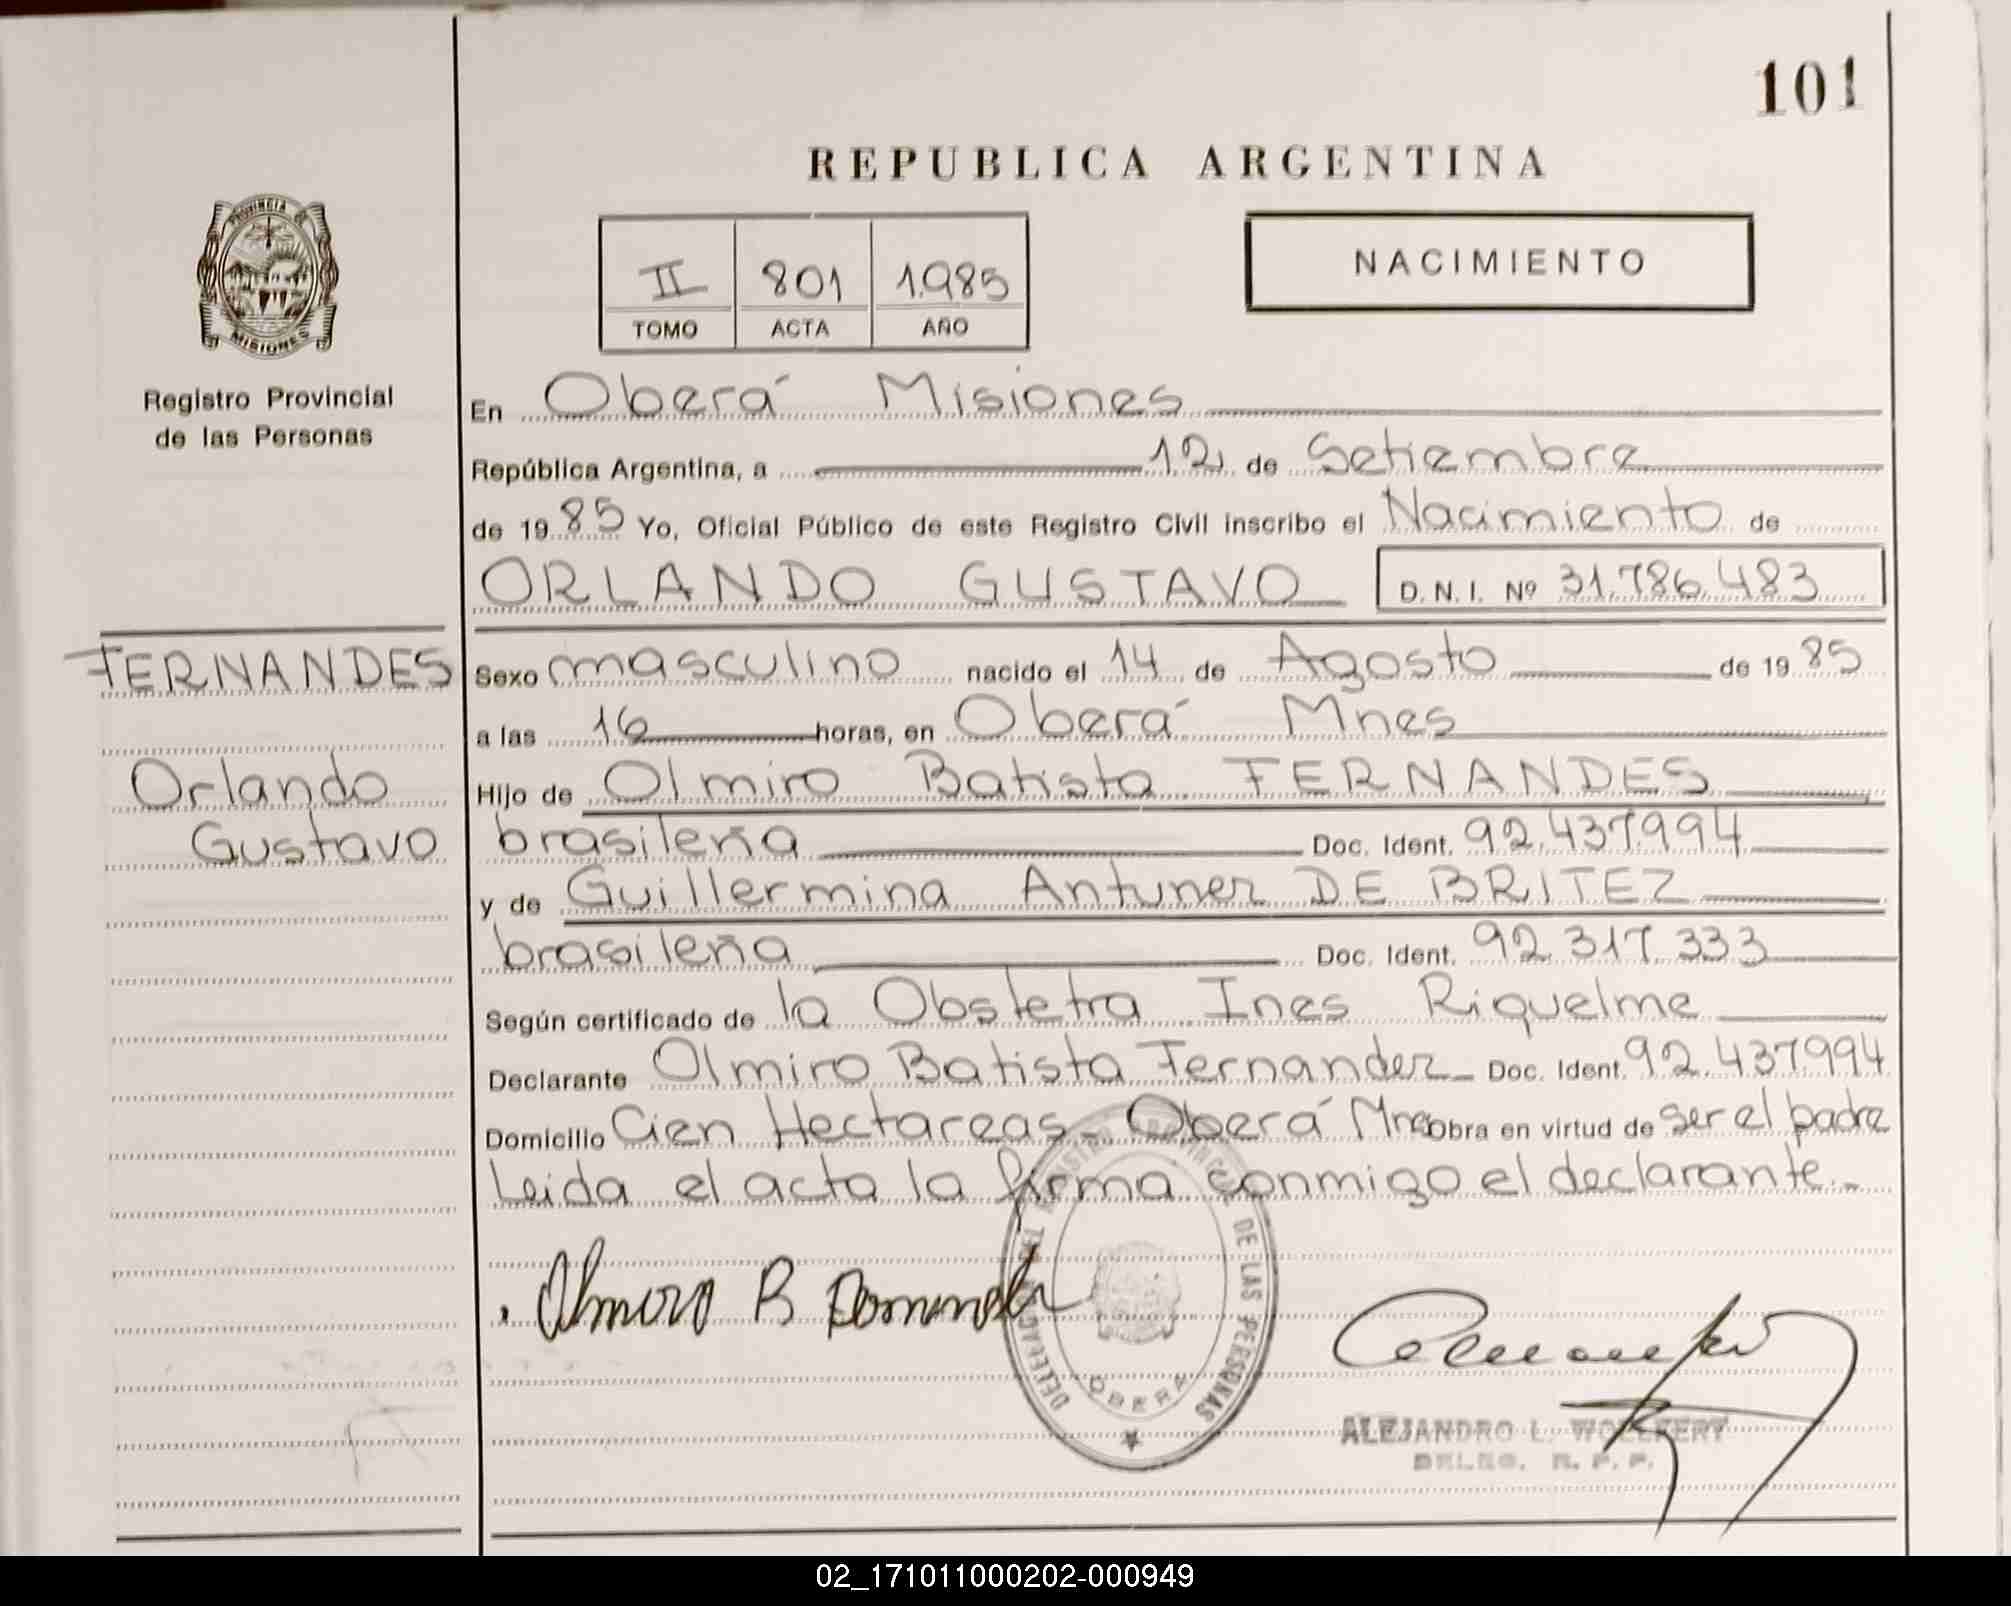 101
REPUBLICA ARGENTINA
PROVINCIA DE
MISIONES
Registro Provincial
de las Personas
II 801 1.985
TOMO ACTA AÑO
NACIMIENTO
En Oberá Misiones
República Argentina, a 12 de Setiembre
de 19 85 Yo, Oficial Público de este Registro Civil inscribo el Nacimiento de
ORLANDO GUSTAVO D.N.I. Nº 31.786.483
FERNANDES
Orlando
Gustavo
Sexo masculino nacido el 14 de Agosto de 19 85
a las 16 horas, en Oberá Mnes
Hijo de Olmiro Batista FERNANDES
brasileña Doc. Ident. 92.437.994
y de Guillermina Antunez DE BRITEZ
brasileña Doc. Ident. 92.317.333
Según certificado de la Obstetra Ines Riquelme
Declarante Olmiro Batista Fernandez Doc. Ident. 92.437994
Domicilio Cien Hectareas - Oberá Mnes Obra en virtud de ser el padre
Leida el acta la firma conmigo el declarante.-
Olmiro B
DELEGACION DEL REGISTRO PROVINCIAL DE LAS PERSONAS
OBERA
ALEJANDRO L.
DELEG. R. P. P.
02_171011000202-000949